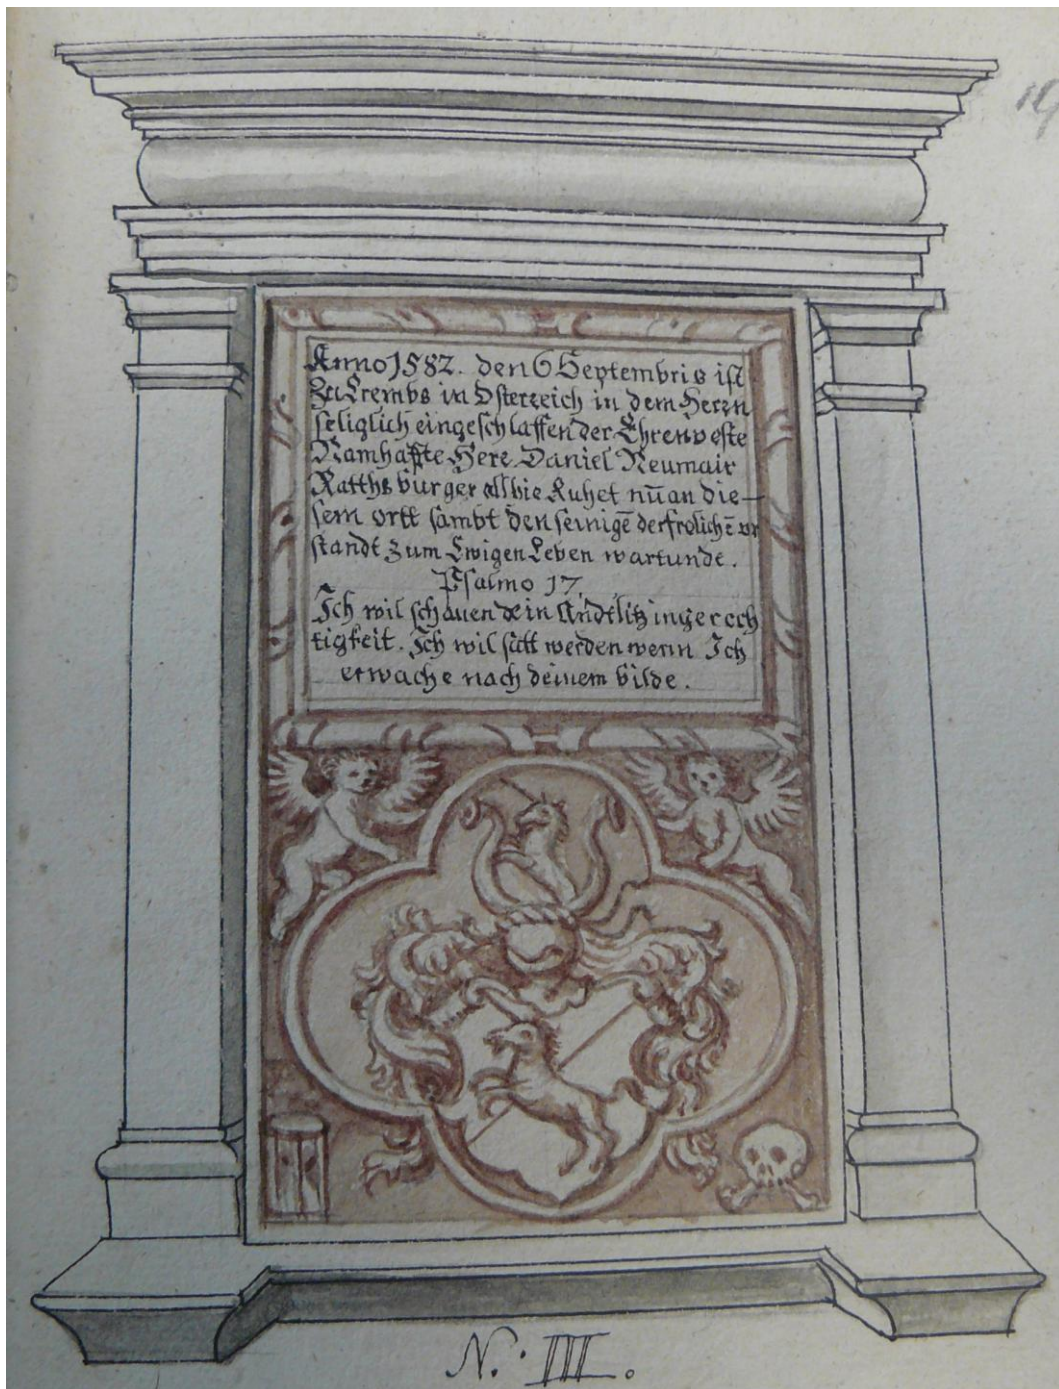 19
Anno 1582. den 6 Septembris ist
Zu Crembs in Osterreich in dem Herrn
seliglich eingeschlaffen der Ehrenveste
Namhaffte Herr Daniel Neumair
Ratths burger allhie Ruhet nũ an die-
sem ortt sambt den seinigẽ der frolichẽ ur
standt zum Ewigen Leben wartunde.
Psalmo 17.
Ich wil schauen dein Andtlitz in gerech
tigkeit. Ich wil satt werden wenn Ich
erwache nach deinem bilde.
N. III.